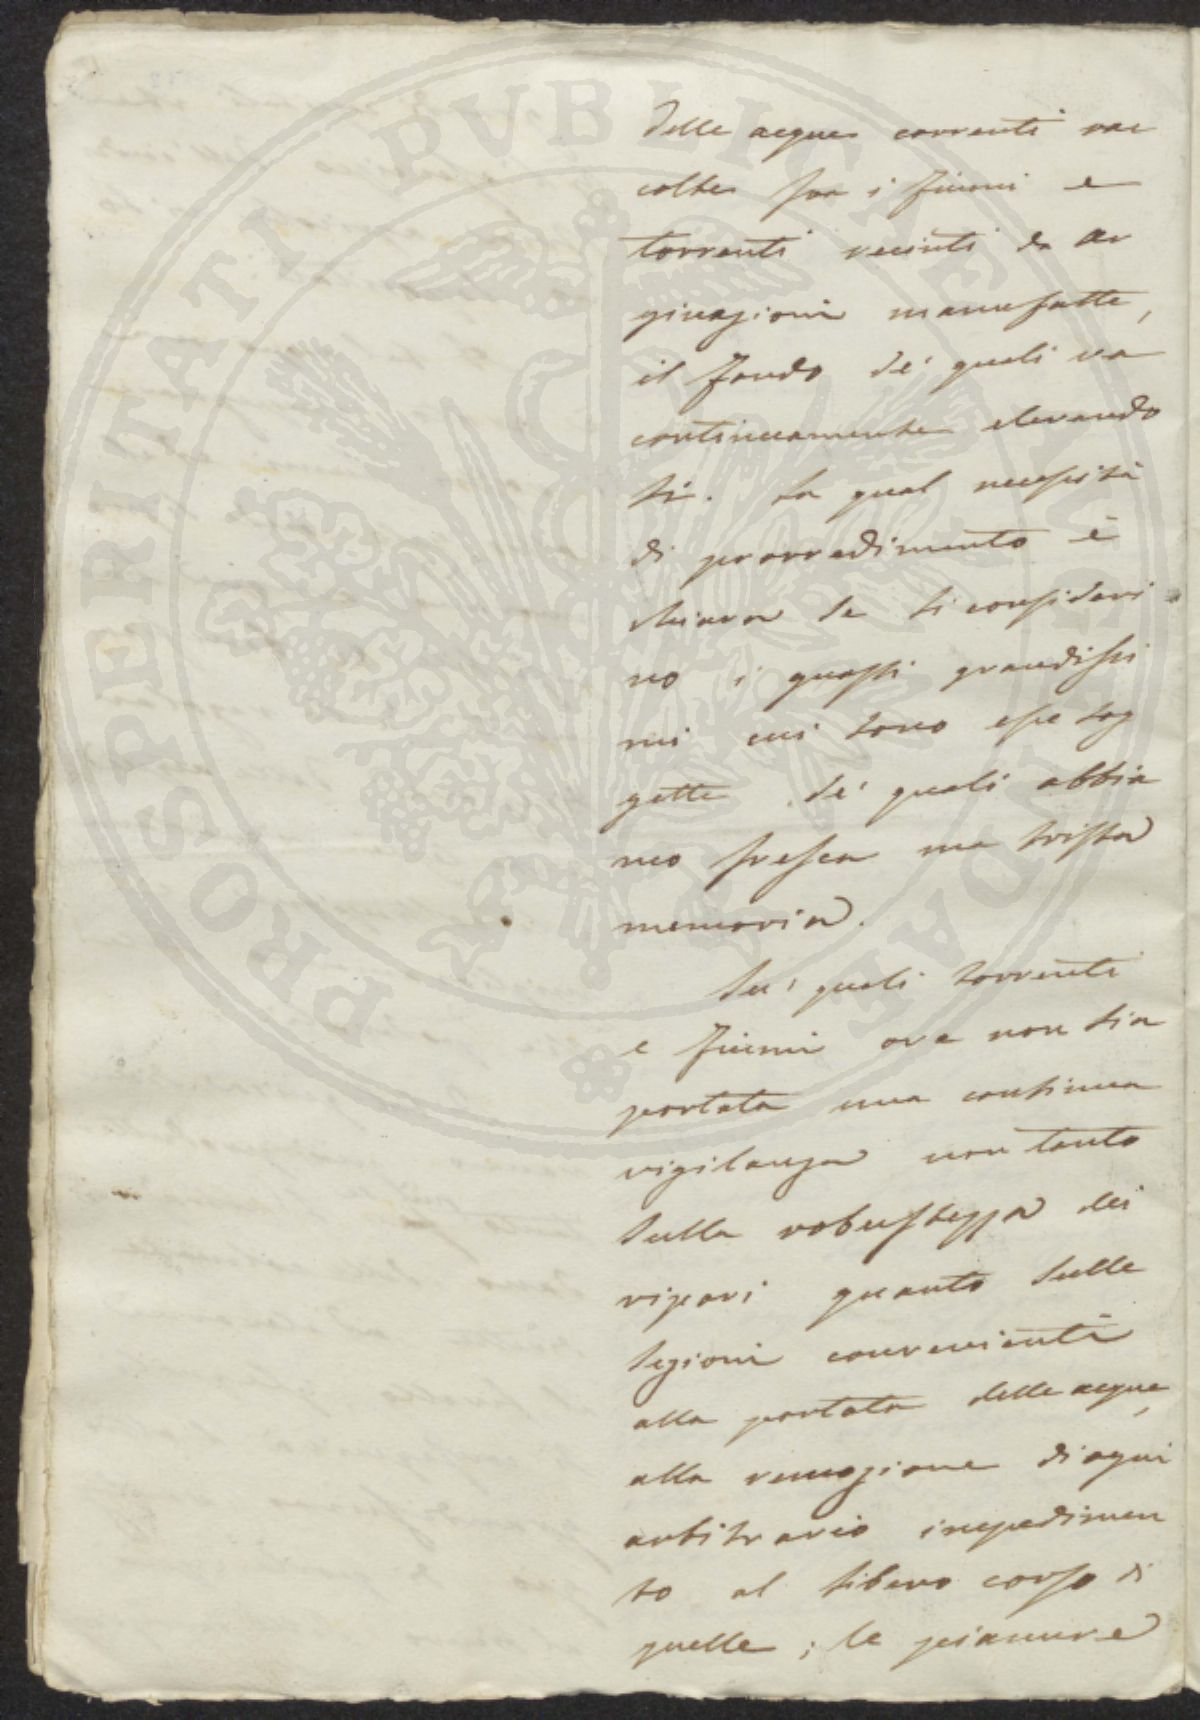 delle acque correnti rac
colte fra i fiumi e
torrenti recinti da ar
ginazioni manufatte,
il fondo de' quali va
continuamente elevando
si. La qual necessità
di provvedimento è
chiara se si consideri
no i guasti grandissi
mi cui sono esse sog
gette, de' quali abbia
mo fresca ma trista
memoria.
Su' quali torrenti
e fiumi ove non sia
portata una continua
vigilanza non tanto
sulla robustezza dei
ripari quanto sulle
sezioni convenienti
alla portata delle acque,
alla remozione di ogni
arbitrario impedimen
to al libero corso di
quelle; le pianure
PROSPERITATI PVBLICAE AVGENDAE